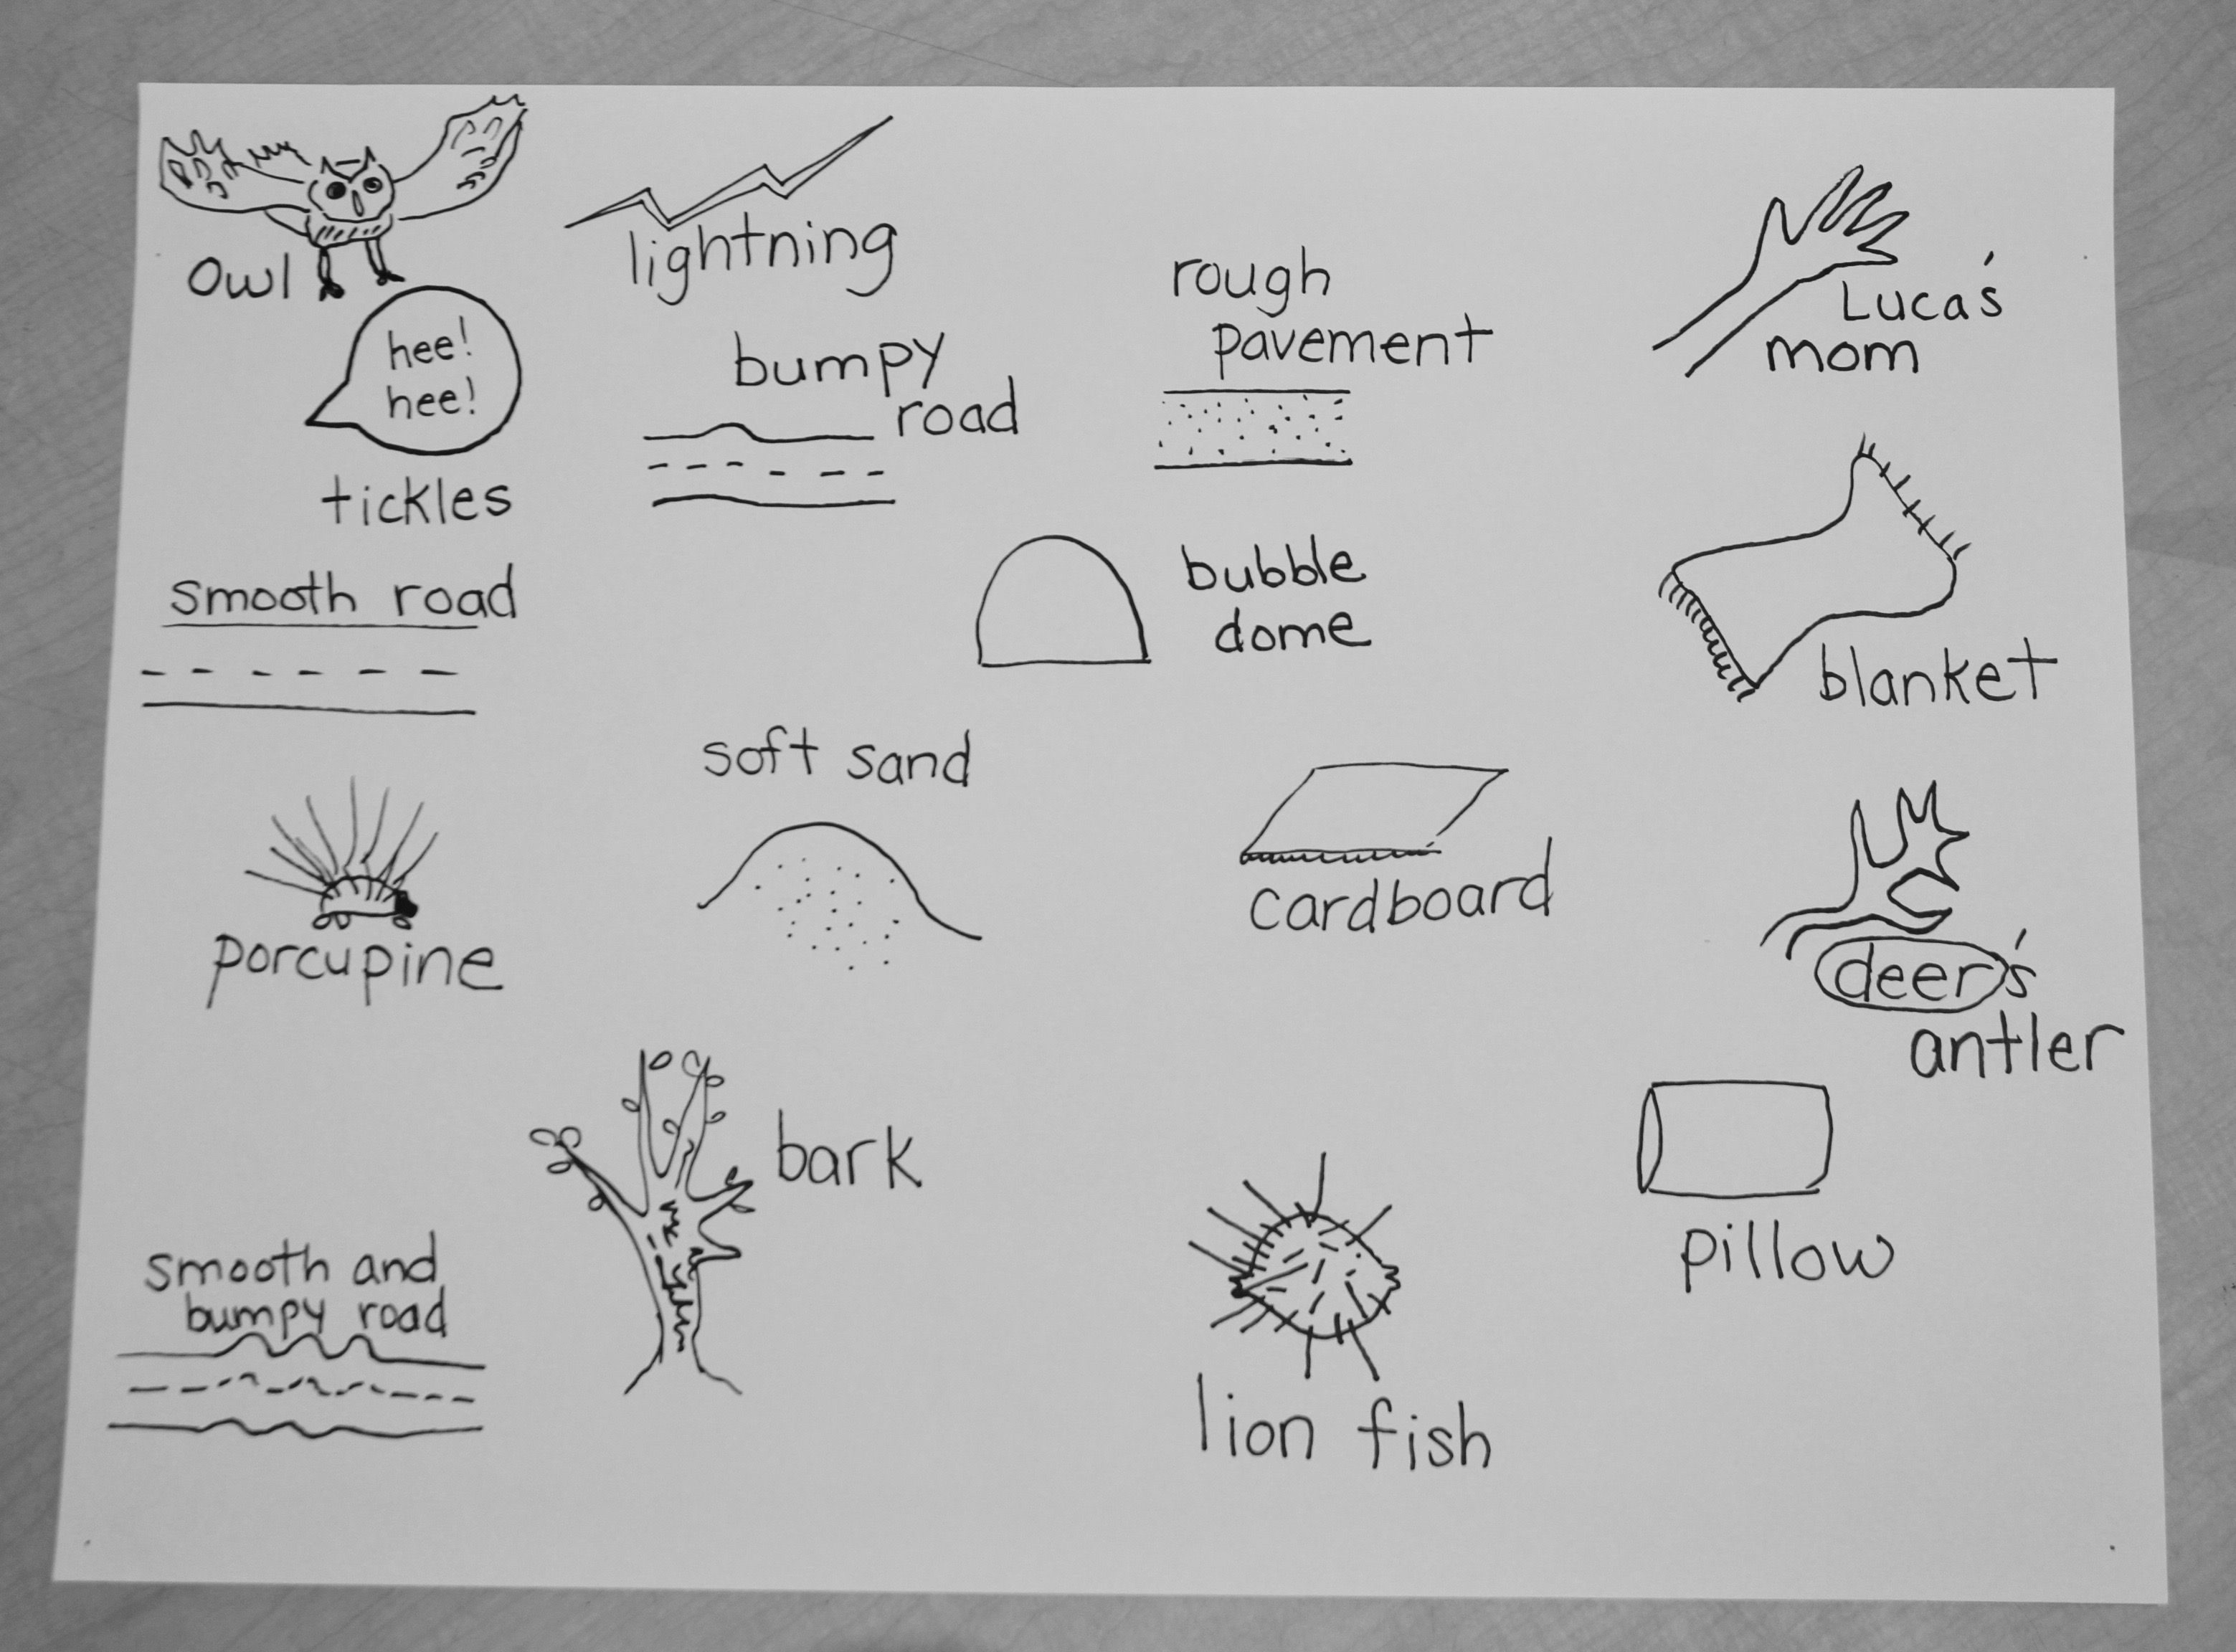 owl
lightning
hee!
hee!
tickles
bumpy
road
rough
pavement
Luca's
mom
smooth road
bubble
dome
blanket
porcupine
soft sand
cardboard
deer's
antler
bark
pillow
smooth and
bumpy road
lion fish